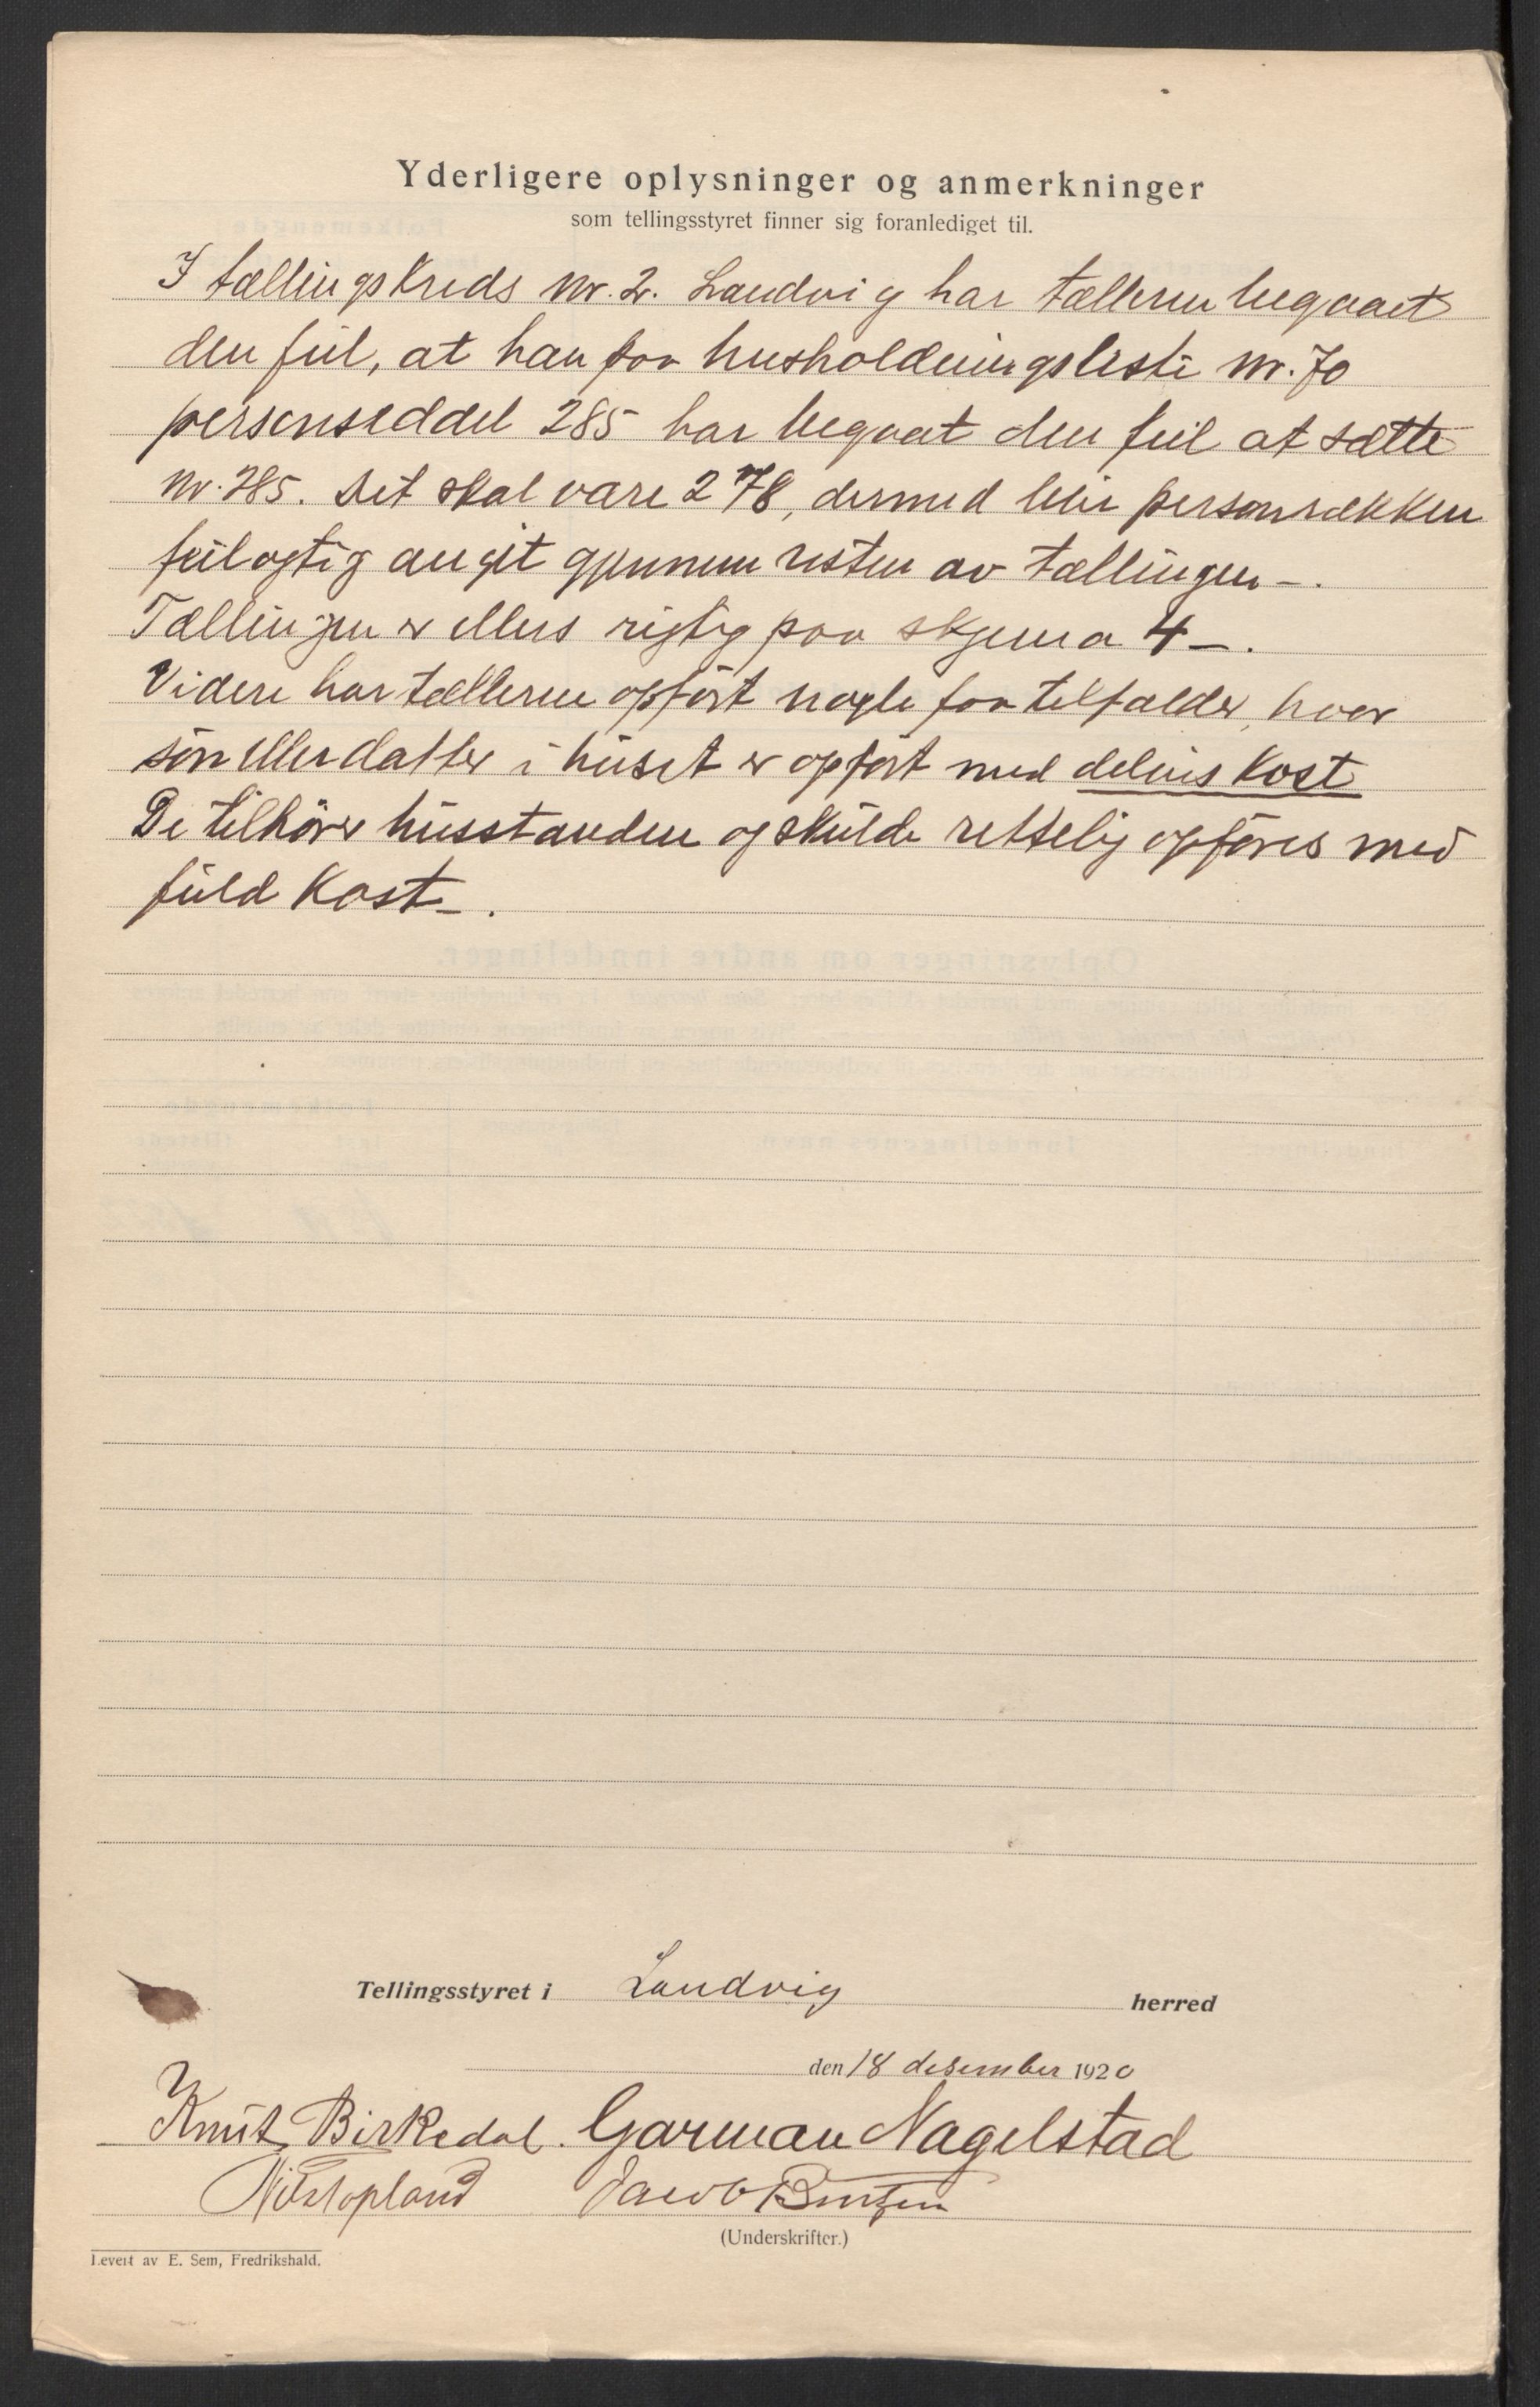 Yderligere oplysninger og anmerkninger
som tellingsstyret finner sig foranlediget til.
I tællingskreds nr. 2. Landvig har tælleren begaaet
den feil, at han paa husholdningsliste nr. 70
personseddel 285 har begaat den feil at sætte
nr. 285. Det skal være 278, dermed blir personrækken
feilagtig angit gjennem resten av tællingen -.
Tællingen er ellers rigtig paa skjema 4 -.
Videre har tælleren opført nogle faa tilfælder, hvor
søn eller datter i huset er opført med delvis kost
De tilhører husstanden og skulde rettelig opføres med
fuld kost -.
Tellingsstyret i Landvig herred
den 18 desember 1920
Knut Birkedal. Garman Nagelstad
Jacob
(Underskrifter.)
Levert av E. Sem, Fredrikshald.